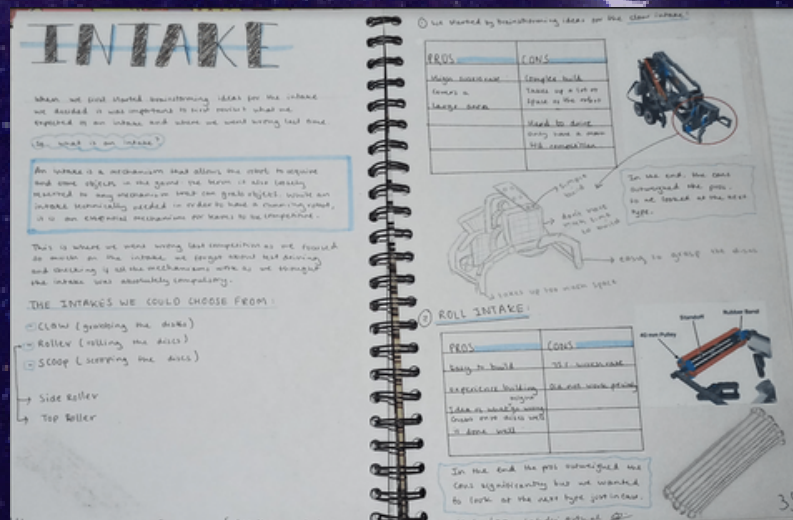 INTAKE
When we first started brainstorming ideas for the intake
we decided it was important to first revisit what we
expected of an intake and where we went wrong last time.
So what is an intake?
An intake is a mechanism that allows the robot to acquire
and store objects in the game. The term is also loosely
to any mechanism that can grab objects. While an
intake technically needed in order to have a running robot,
it is an essential mechanism for teams to be competitive.
This is where we went wrong last competition as we focused
so much on the intake we forgot about test driving
and checking if all the mechanisms work as we thought
the intake was absolutely compulsory.
THE INTAKES WE COULD CHOOSE FROM:
CLAW (grabbing the disks)
Roller (rolling the discs)
SCOOP (scooping the discs)
Side Roller
Top Roller
① We started by brainstorming ideas for the claw intake:
PROS
CONS
High
covers a
large area
Complex build
Takes up a lot of
space on the robot
Hard to drive
only have a
competition
simple
build
don't have
much time
to build
easy to grasp the discs
takes up too much space
In the end, the cons
outweighed the pros.
So we looked at the next
type.
② ROLL INTAKE:
PROS
CONS
Easy to build
experience building
Idea of
is done well
Did not work
40 mm Pulley
Standoff
Rubber Band
In the end the pros outweighed the
cons significantly but we wanted
to look at the next type just in case.